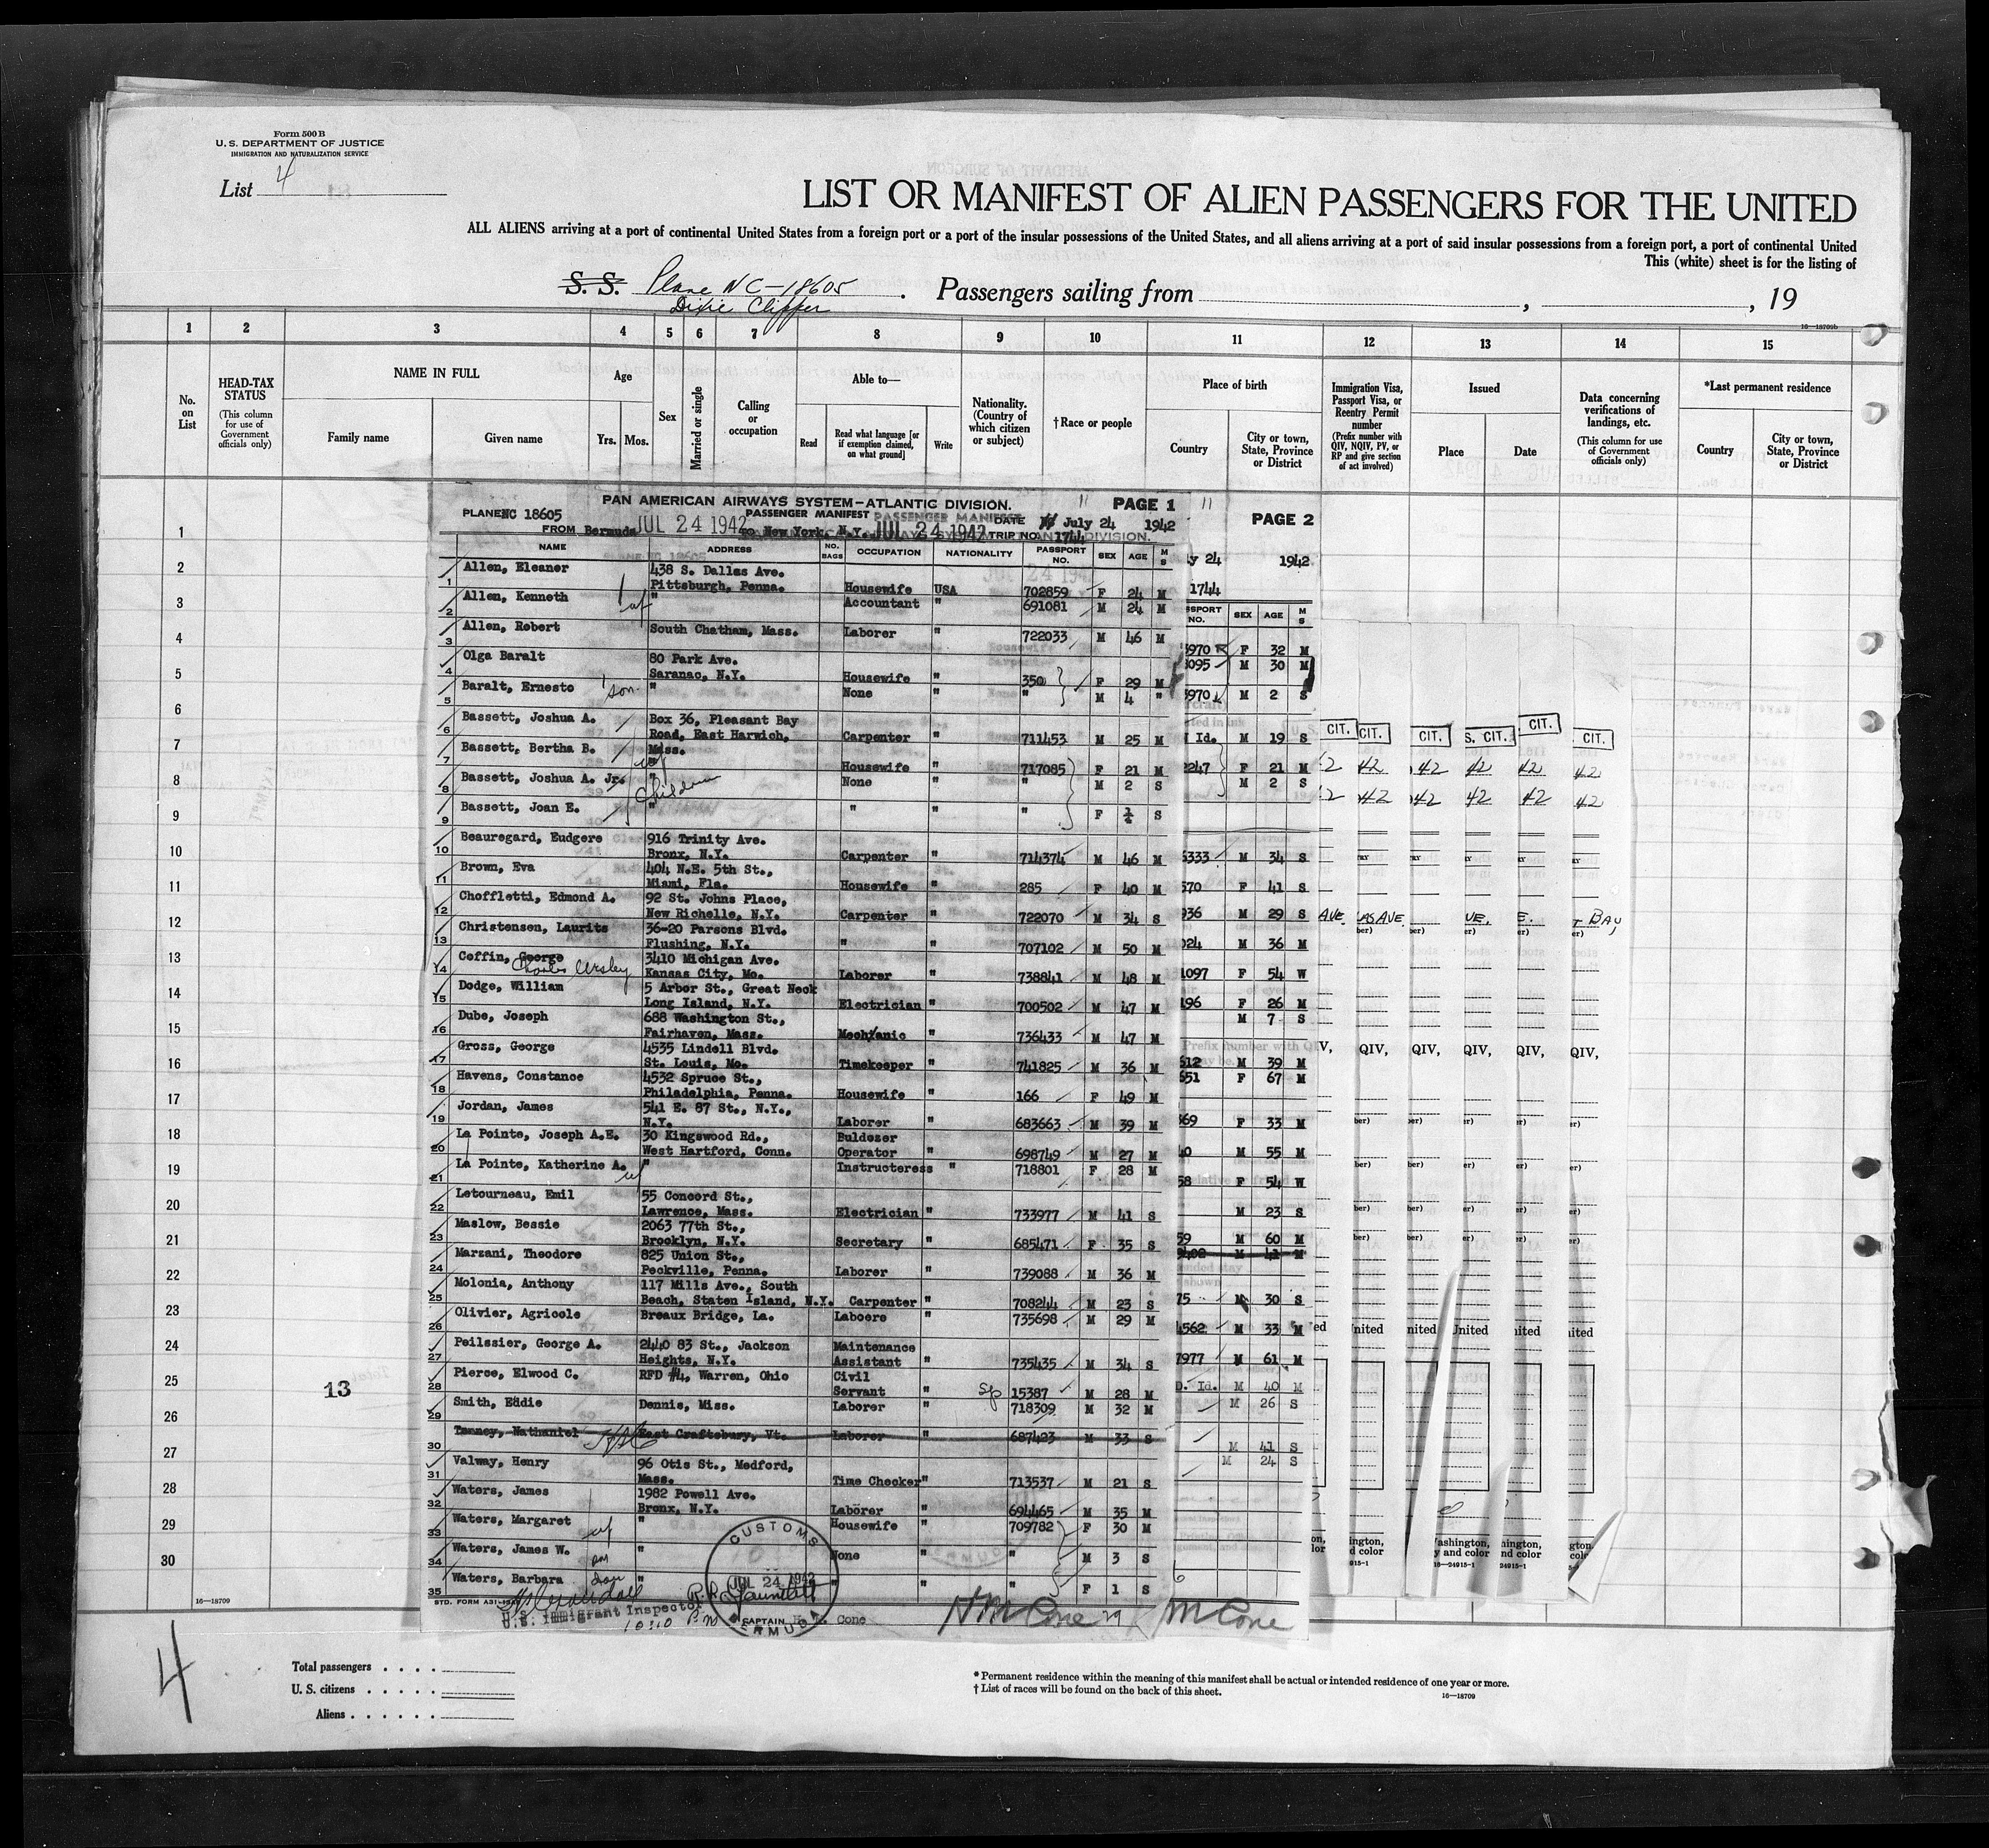 Form 500 B
U. S. DEPARTMENT OF JUSTICE
IMMIGRATION AND NATURALIZATION SERVICE
List 4
LIST OR MANIFEST OF ALIEN PASSENGERS FOR THE UNITED
ALL ALIENS arriving at a port of continental United States from a foreign port or a port of the insular possessions of the United States, and all aliens arriving at a port of said insular possessions from a foreign port, a port of continental United
This (white) sheet is for the listing of
S. S. Plane NC-18605 . Passengers sailing from , , 19
Dixie Clipper
16—18709b
1 2 3 4 5 6 7 8 9 10 11 12 13 14 15
No. on List
HEAD-TAX STATUS (This column for use of Government officials only)
NAME IN FULL
Family name Given name
Age
Yrs. Mos.
Sex
Married or single
Calling or occupation
Able to—
Read Read what language [or if exemption claimed, on what ground] Write
Nationality. (Country of which citizen or subject)
† Race or people
Place of birth
Country City or town, State, Province or District
Immigration Visa, Passport Visa, or Reentry Permit number (Prefix number with QIV, NQIV, PV, or RP and give section of act involved)
Issued
Place Date
Data concerning verifications of landings, etc. (This column for use of Government officials only)
*Last permanent residence
Country City or town, State, Province or District
PAN AMERICAN AIRWAYS SYSTEM—ATLANTIC DIVISION. PAGE 1
PLANE NC 18605 PASSENGER MANIFEST DATE July 24 1942
FROM Bermuda JUL 24 1942 TO New York, N.Y. JUL 24 1942 TRIP NO. 1744
NAME ADDRESS NO. BAGS OCCUPATION NATIONALITY PASSPORT NO. SEX AGE M S
1 Allen, Eleanor 438 S. Dallas Ave. Pittsburgh, Penna. Housewife USA 702859 F 24 M
2 Allen, Kenneth " Accountant " 691081 M 24 M
3 Allen, Robert South Chatham, Mass. Laborer " 722033 M 46 M
4 Olga Baralt 80 Park Ave. Saranac, N.Y. Housewife " 350 F 29 M
5 Baralt, Ernesto son " None " " M 4 "
6 Bassett, Joshua A. Box 36, Pleasant Bay Road, East Harwich, Mass. Carpenter " 711453 M 25 M
7 Bassett, Bertha B. wf " Housewife " 717085 F 21 M
8 Bassett, Joshua A. Jr. Children " None " " M 2 S
9 Bassett, Joan E. " " " " F S
10 Beauregard, Eudgere 916 Trinity Ave. Bronx, N.Y. Carpenter " 714374 M 46 M
11 Brown, Eva 404 N.E. 5th St., Miami, Fla. Housewife " 285 F 40 M
12 Choffletti, Edmond A. 92 St. Johns Place, New Richelle, N.Y. Carpenter " 722070 M 34 S
13 Christensen, Laurits 36-20 Parsons Blvd. Flushing, N.Y. " " 707102 M 50 M
14 Coffin, George Charles Ursley 3410 Michigan Ave. Kansas City, Mo. Laborer " 738841 M 48 M
15 Dodge, William 5 Arbor St., Great Neck Long Island, N.Y. Electrician " 700502 M 47 M
16 Dube, Joseph 688 Washington St., Fairhaven, Mass. Mechanic " 736433 M 47 M
17 Gross, George 4535 Lindell Blvd. St. Louis, Mo. Timekeeper " 741825 M 36 M
18 Havens, Constance 4532 Spruce St., Philadelphia, Penna. Housewife " 166 F 49 M
19 Jordan, James 541 E. 87 St., N.Y., N.Y. Laborer " 683663 M 39 M
20 La Pointe, Joseph A.E. 30 Kingswood Rd., West Hartford, Conn. Buldozer Operator " 698749 M 27 M
21 La Pointe, Katherine A. wf " Instructoress " 718801 F 28 M
22 Letourneau, Emil 55 Concord St., Lawrence, Mass. Electrician " 733977 M 41 S
23 Maslow, Bessie 2063 77th St., Brooklyn, N.Y. Secretary " 685471 F 35 S
24 Marzani, Theodore 825 Union St., Peckville, Penna. Laborer " 739088 M 36 M
25 Molonia, Anthony 117 Mills Ave., South Beach, Staten Island, N.Y. Carpenter " 708244 M 23 S
26 Olivier, Agricole Breaux Bridge, La. Laboere " 735698 M 29 M
27 Peilssier, George A. 2440 83 St., Jackson Heights, N.Y. Maintenance Assistant " 735435 M 34 S
28 Pierce, Elwood C. RFD #4, Warren, Ohio Civil Servant " Sp 15387 M 28 M
29 Smith, Eddie Dennis, Miss. Laborer " 718309 M 32 M
30 Tenney, Nathaniel East Craftsbury, Vt. Laborer " 687423 M 33 S
31 Valway, Henry 96 Otis St., Medford, Mass. Time Checker " 713537 M 21 S
32 Waters, James 1982 Powell Ave. Bronx, N.Y. Laborer " 694465 M 35 M
33 Waters, Margaret wf " Housewife " 709782 F 30 M
34 Waters, James W. " None " " M 3 S
35 Waters, Barbara " " " " F 1 S
STD. FORM A31
U.S. Immigrant Inspector
10:10 P.M
CUSTOMS JUL 24 1942 BERMUDA
CAPTAIN Cone
HM Cone 29
M Cone
11 PAGE 2
ly 24 1942
1744
SPORT NO. SEX AGE M S
3970 F 32 M
8095 M 30 M
3970 M 2 S
Id. M 19 S
2247 F 21 M
M 2 S
5333 M 34 S
570 F 41 S
936 M 29 S
024 M 36 M
1097 F 54 W
196 F 26 M
M 7 S
612 M 39 M
651 F 67 M
369 F 33 M
40 M 55 M
58 F 54 W
M 23 S
59 M 60 M
9402 M 41 M
75 M 30 S
4562 M 33 M
7977 M 61 M
D. Id. M 40 M
M 26 S
M 41 S
M 24 S
CIT. CIT. CIT. S. CIT. CIT. CIT.
42 42 42 42 42 42
42 42 42 42 42 42
AVE AS AVE. VE. E. T BAY
IV, QIV, QIV, QIV, QIV, QIV,
ed nited nited United nited nited
1
2
3
4
5
6
7
8
9
10
11
12
13
14
15
16
17
18
19
20
21
22
23
24
25
26
27
28
29
30
13
16—18709
4
Total passengers . . . .
U. S. citizens . . . . .
Aliens . . . . . .
* Permanent residence within the meaning of this manifest shall be actual or intended residence of one year or more.
† List of races will be found on the back of this sheet.
16—18709